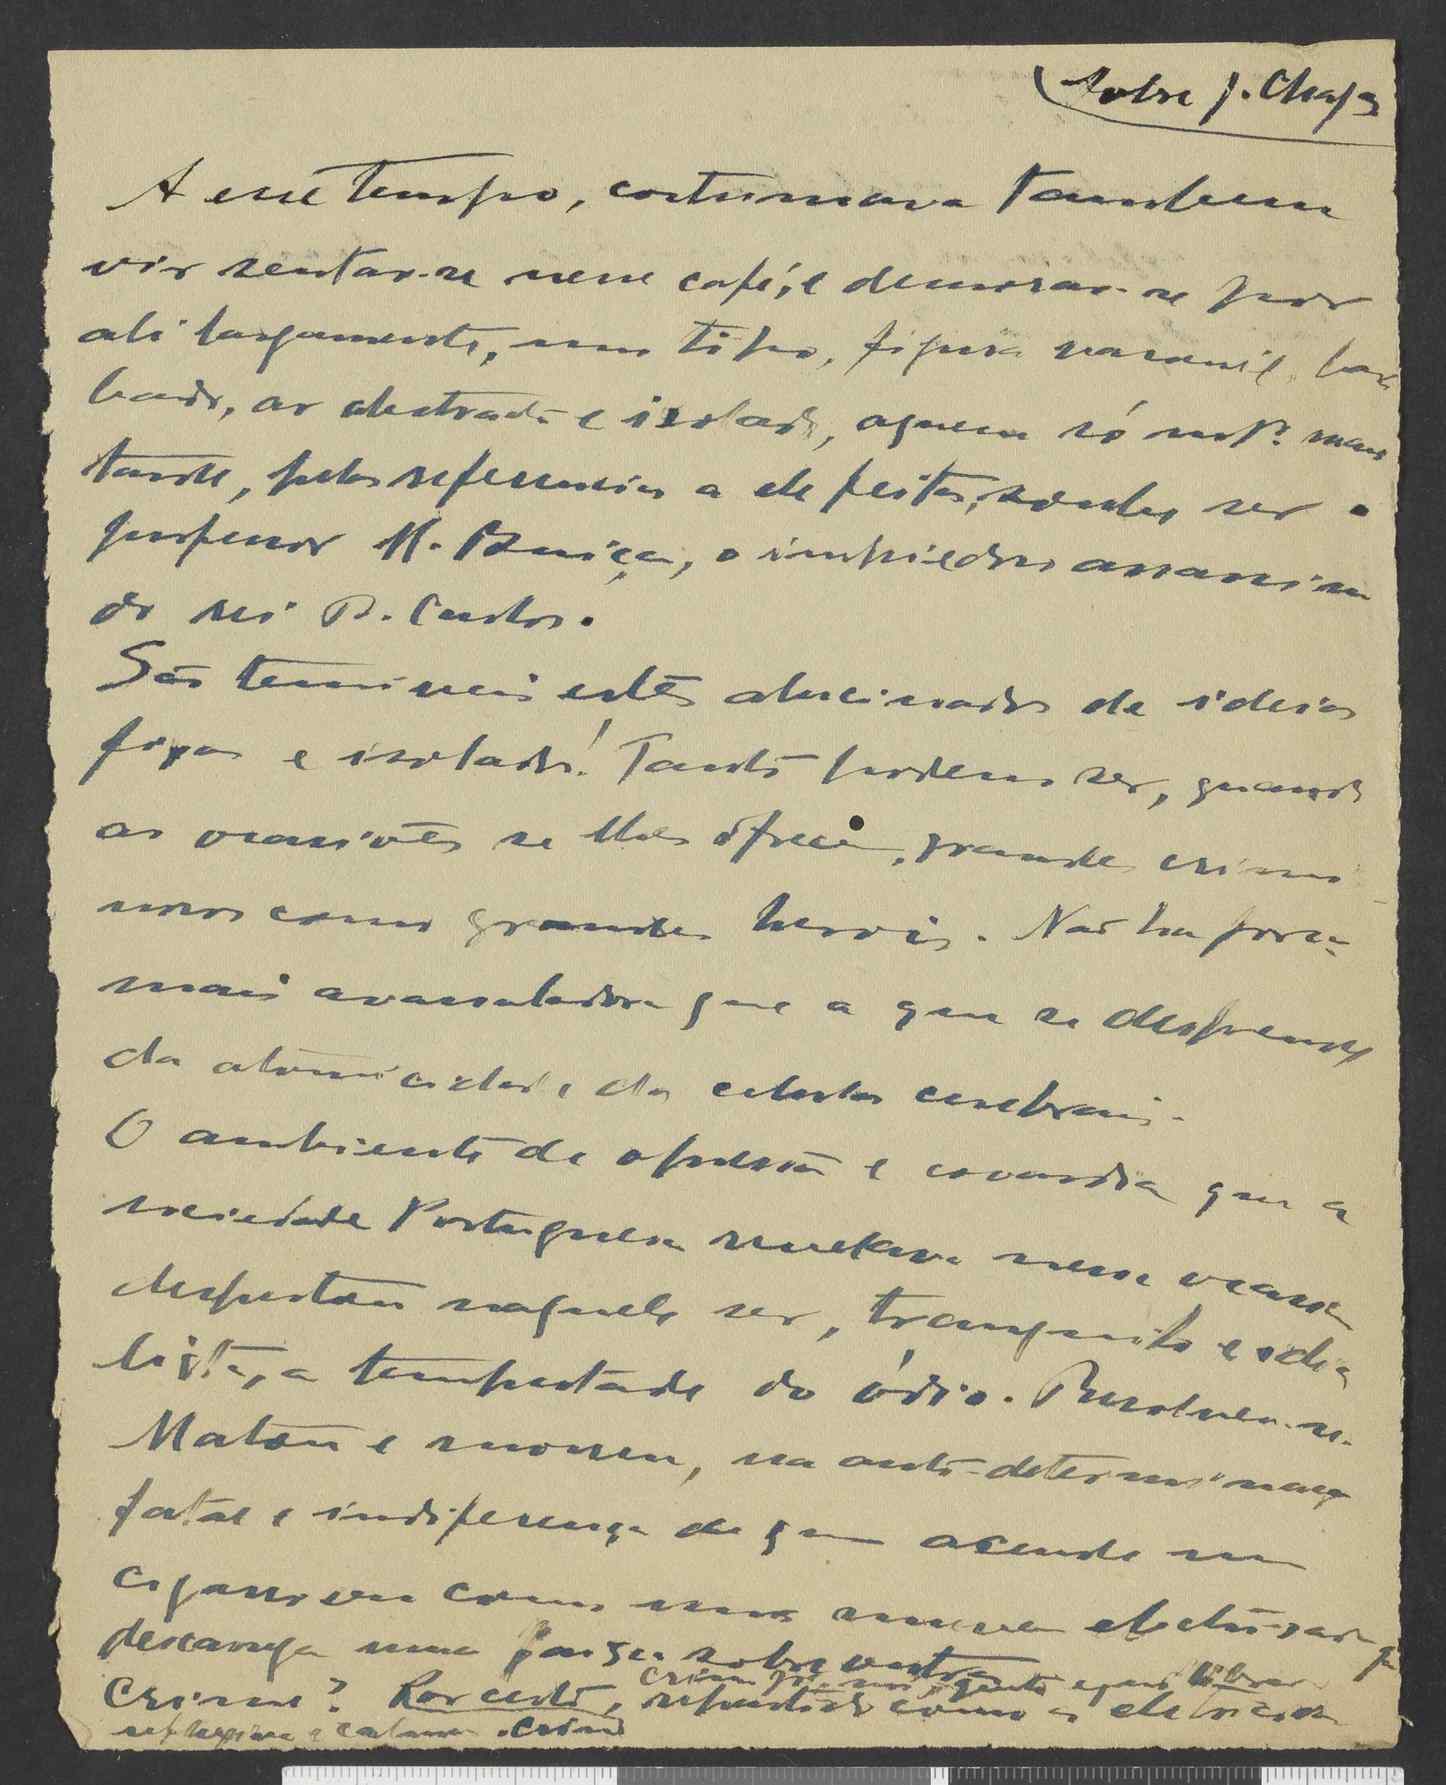 Sobre J. Chagas
A esse tempo, costumava tambem
vir sentar-se nesse café, e demorar-se por
ali largamente, um tipo, figura varonil, bar
bado, ar abstrato e isolado, aquem só mto. mais
tarde, pelas referencias a ele feitas, soubes ser o
professor M. Buiça, o impiedoso assassino
do rei D. Carlos.
São terriveis estes alucinados de ideias
fixas e isolados! Tanto podem ser, quando
as ocasiões se lhes ofrece, grandes crimi
nosos como grandes herois. Não ha força
mais avassaladora que a que se desprende
da atomicidade das celulas cerebrais.
O ambiente de opressão e covardia que a
sociedade Portuguesa nessa ocasião
despertou naquele ser, tranquilo e idia
lista, a tempestade do ódio. Resolveu-se.
Matou e morreu, na auto-determinação
fatal e indiferença de quem acende um
cigarro ou como uma nuvem electrisada que
descarrega uma faisca sobre outra
crime
Crime? Por certo, repentido como a eletricida
reflexivo e calmo. crime